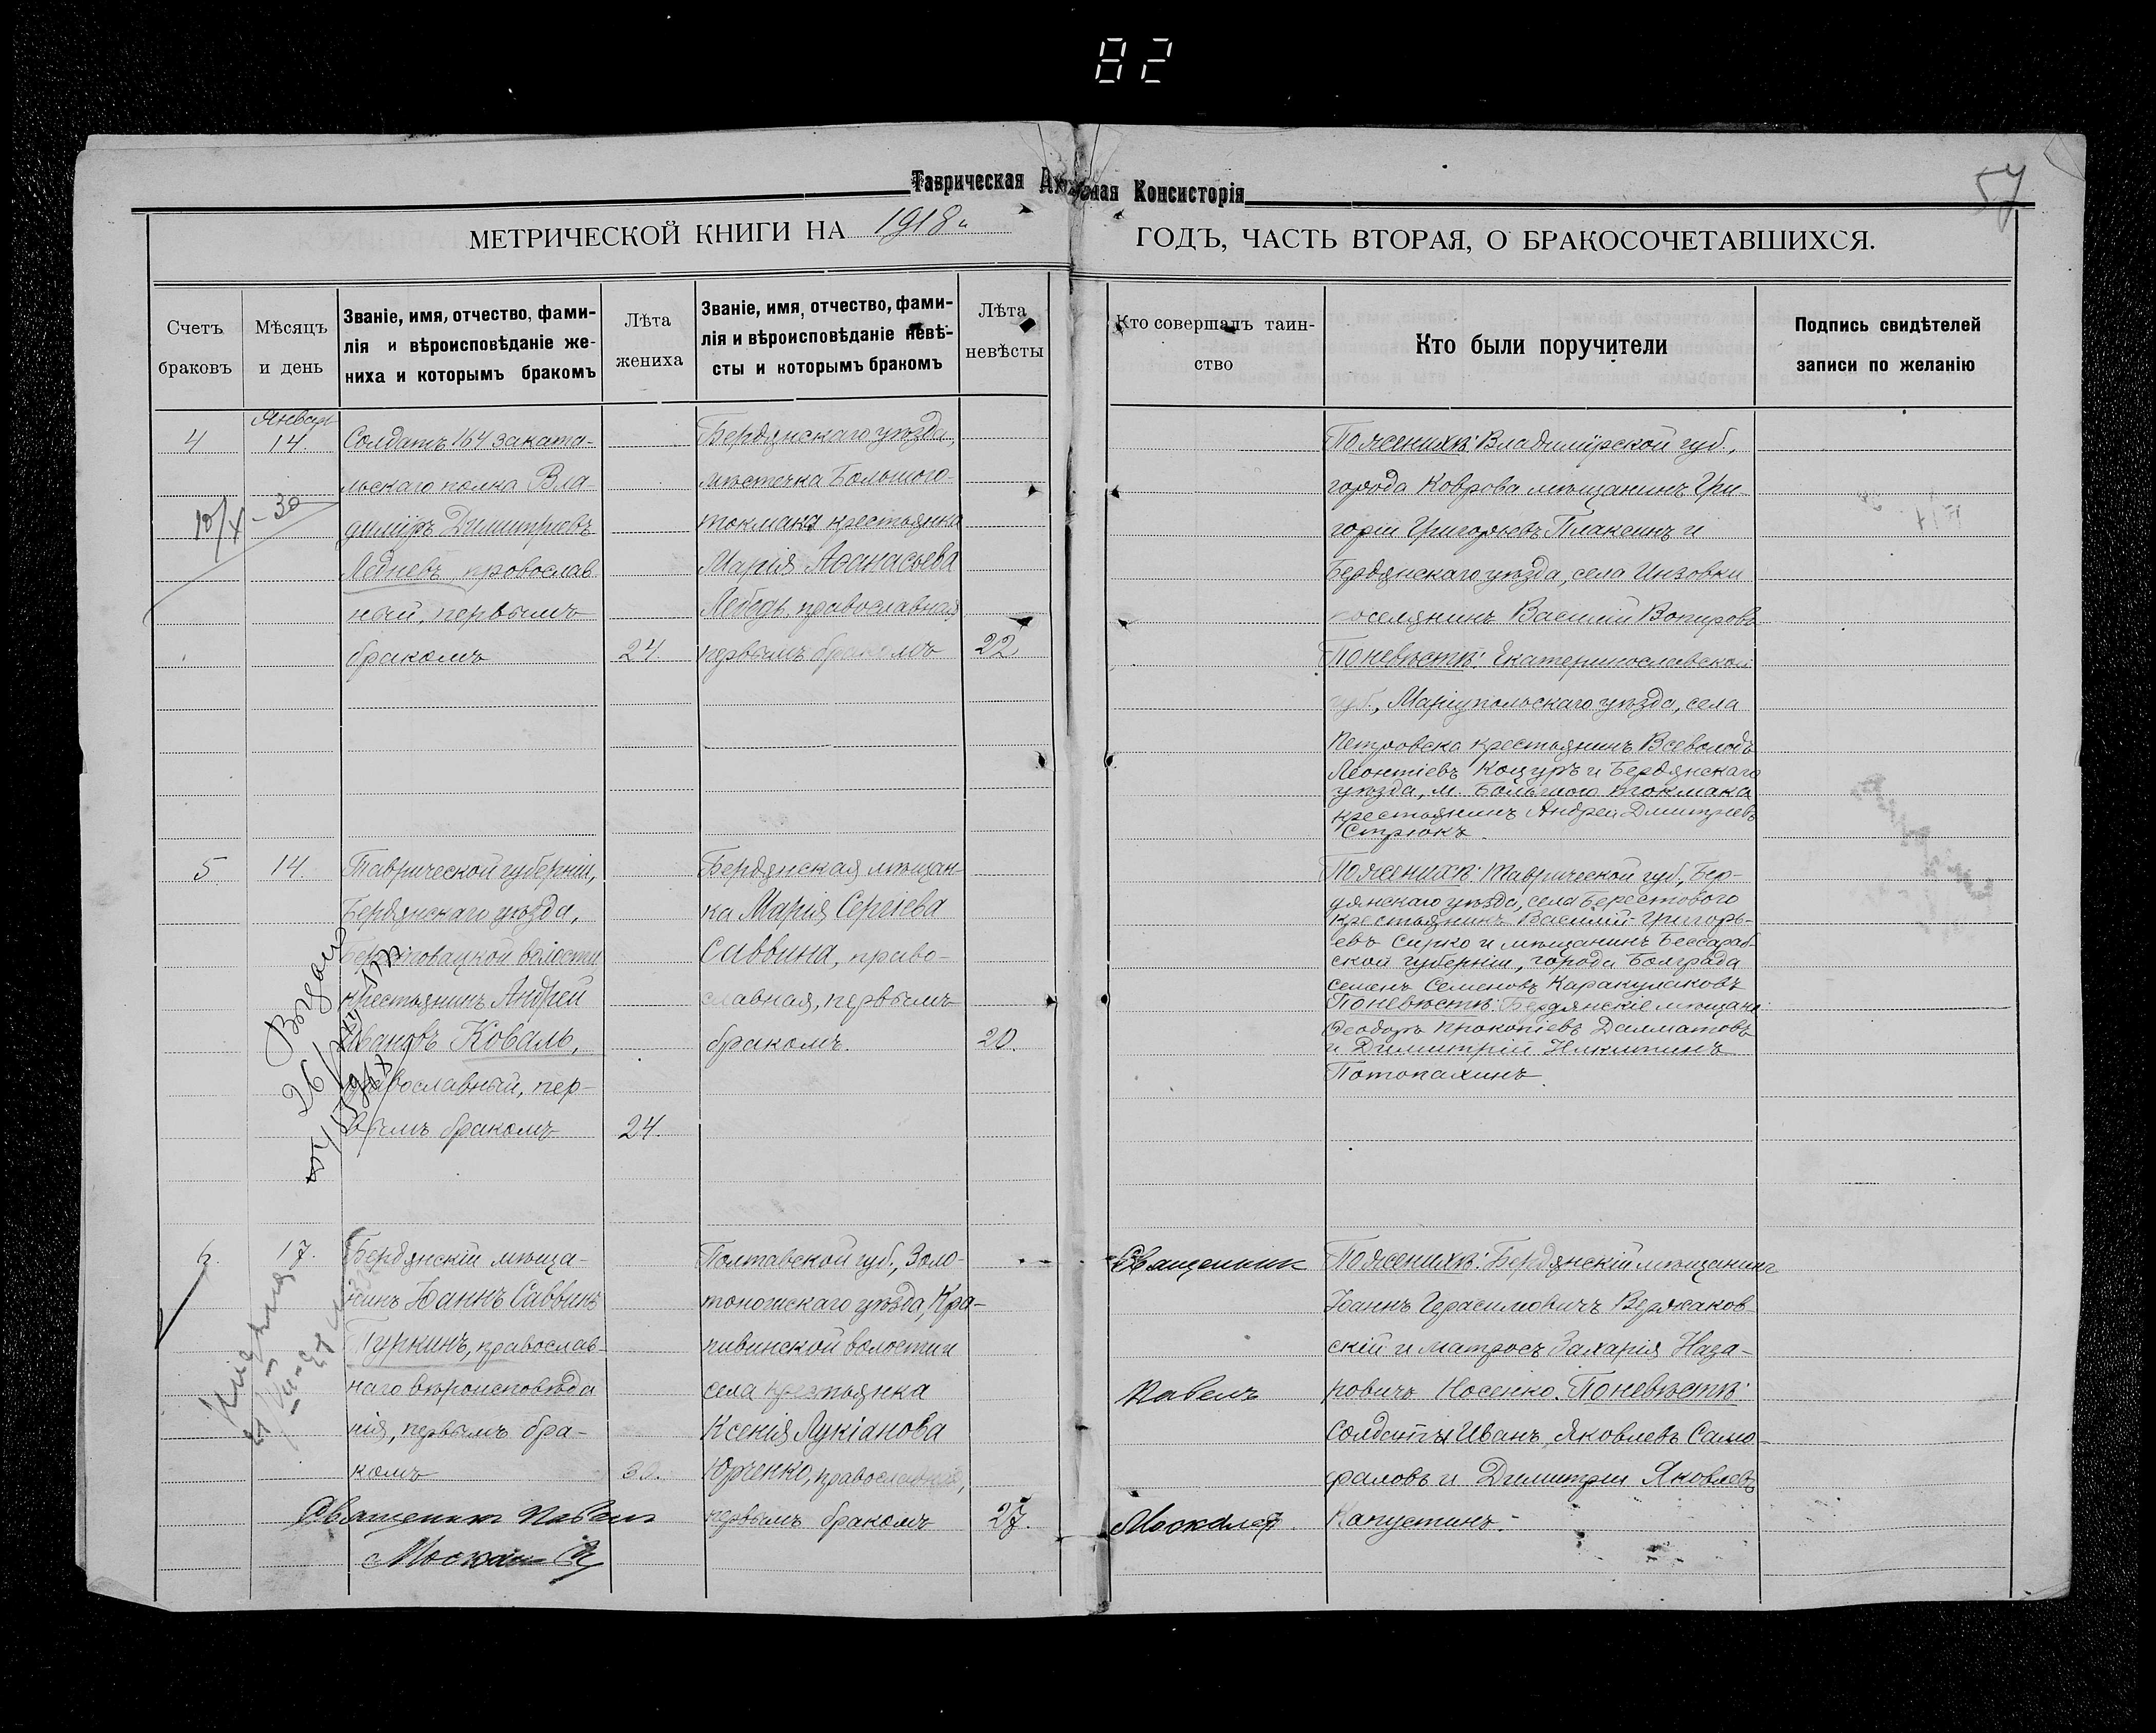 82
57
Таврическая Духовная Консисторія
МЕТРИЧЕСКОЙ КНИГИ НА 1918 ГОДЪ, ЧАСТЬ ВТОРАЯ, О БРАКОСОЧЕТАВШИХСЯ.
Счетъ браковъ
Мѣсяцъ и день
Званіе, имя, отчество, фами-
лія и вѣроисповѣданіе же-
ниха и которымъ бракомъ
Лѣта жениха
Званіе, имя, отчество, фами-
лія и вѣроисповѣданіе невѣ-
сты и которымъ бракомъ
Лѣта невѣсты
Кто совершалъ таин-
ство
Кто были поручители
Подпись свидѣтелей
записи по желанію
4
Январь
14.
Солдатъ 164 заката-
льскаго полка Вла-
димиръ Димитриевъ
Ледневъ, провослав
ный, первымъ
бракомъ
24.
Бердянскаго уѣзда,
мѣстечка Большого-
токмака крестьянка
Марія Аѳанасьева
Лебедь, православная
первымъ бракомъ
22.
По женихѣ: Владимірской губ.,
города Коврова мѣщанинъ Гри-
горій Григорьевъ Плаксинъ и
Бердянскаго уѣзда, села Инзовки
поселянинъ Василій Вопировъ
По невѣстѣ: Екатеринославской
губ., Маріупольскаго уѣзда, села
Петровска крестьянинъ Всеволодъ
Леонтіевъ Коцуръ и Бердянскаго
уѣзда, м. Большого Токмака
крестьянинъ Андрей Дмитріевъ
Стрюкъ.
5
14.
Таврической губерніи,
Бердянскаго уѣзда,
волости
крестьянинъ Андрей
Ивановъ Коваль,
православный, пер-
вымъ бракомъ
24.
Бердянская мѣщан-
ка Марія Сергіева
Саввина, право-
славная, первымъ
бракомъ.
20.
По женихѣ: Таврической губ., Бер-
дянскаго уѣзда, села Берестового
крестьянинъ Василій Григорь-
евъ Сирко и мѣщанинъ Бессараб-
ской губерніи, города Болграда
Семенъ Семеновъ Каракулаковъ
По невѣстѣ: Бердянскіе мѣщане:
Ѳеодоръ Прокопіевъ Далматовъ
и Димитрій Никитинъ
Потопахинъ.
6.
17.
Бердянскій мѣща-
нинъ Іоаннъ Саввинъ
православ-
наго вѣроисповѣда
нія, первымъ бра-
комъ
Полтавской губ., Золо-
тоношскаго уѣзда, Кра-
пивинской волости и
села крестьянка
Ксенія Лукіанова
Юрченко, православная,
первымъ бракомъ
27.
Священникъ
Павелъ
По женихѣ: Бердянскій мѣщанинъ
Іоаннъ Герасимовичъ Вержаков-
скій и матросъ Захарія Наза-
ровичъ Носенко. По невѣстѣ:
Солдаты Иванъ Яковлевъ Само-
фаловъ и Димитрій Яковлевъ
Капустинъ.
Священникъ Павелъ